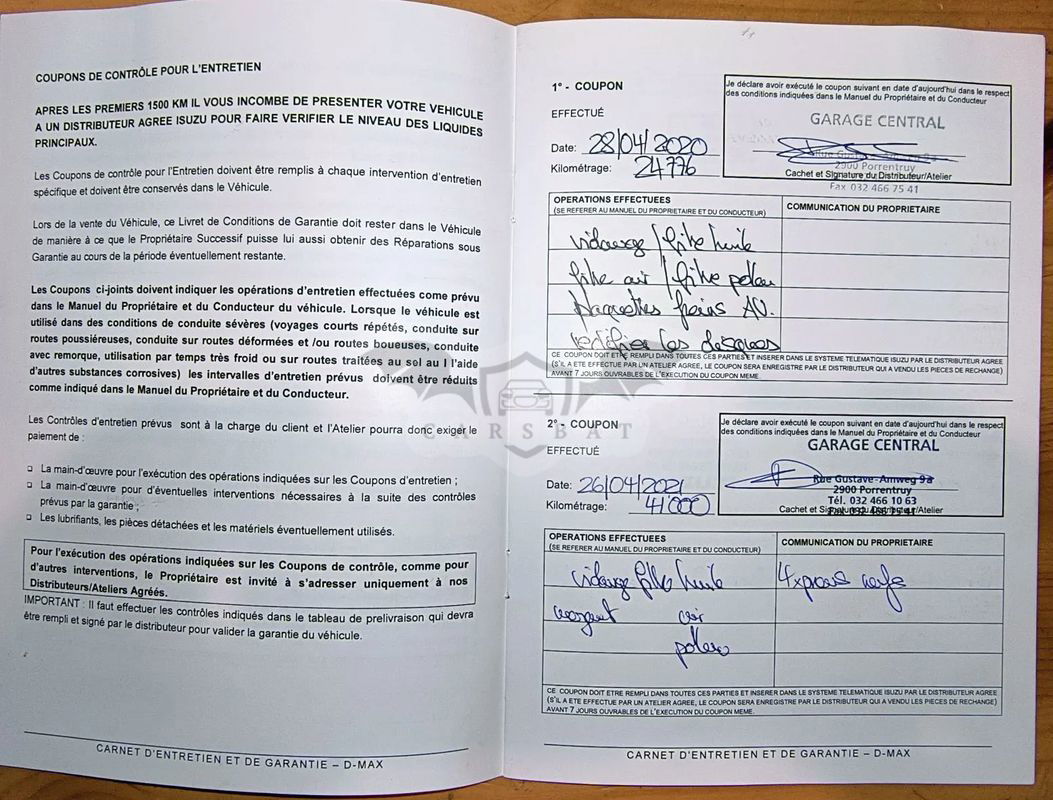 COUPONS DE CONTRÔLE POUR L'ENTRETIEN
APRES LES PREMIERS 1500 KM IL VOUS INCOMBE DE PRESENTER VOTRE VEHICULE
A UN DISTRIBUTEUR AGREE ISUZU POUR FAIRE VERIFIER LE NIVEAU DES LIQUIDES
PRINCIPAUX.
Les Coupons de contrôle pour l'Entretien doivent être remplis à chaque intervention d'entretien
spécifique et doivent être conservés dans le Véhicule.
Lors de la vente du Véhicule, ce Livret de Conditions de Garantie doit rester dans le Véhicule
de manière à ce que le Propriétaire Successif puisse lui aussi obtenir des Réparations sous
Garantie au cours de la période éventuellement restante.
Les Coupons ci-joints doivent indiquer les opérations d'entretien effectuées come prévu
dans le Manuel du Propriétaire et du Conducteur du véhicule. Lorsque le véhicule est
utilisé dans des conditions de conduite sévères (voyages courts répétés, conduite sur
routes poussiéreuses, conduite sur routes déformées et /ou routes boueuses, conduite
avec remorque, utilisation par temps très froid ou sur routes traitées au sol au l l'aide
d'autres substances corrosives) les intervalles d'entretien prévus doivent être réduits
comme indiqué dans le Manuel du Propriétaire et du Conducteur.
Les Contrôles d'entretien prévus sont à la charge du client et l'Atelier pourra donc exiger le
paiement de :
La main-d'œuvre pour l'exécution des opérations indiquées sur les Coupons d'entretien ;
La main-d'œuvre pour d'éventuelles interventions nécessaires à la suite des contrôles
prévus par la garantie ;
Les lubrifiants, les pièces détachées et les matériels éventuellement utilisés.
Pour l'exécution des opérations indiquées sur les Coupons de contrôle, comme pour
d'autres interventions, le Propriétaire est invité à s'adresser uniquement à nos
Distributeurs/Ateliers Agréés.
IMPORTANT : Il faut effectuer les contrôles indiqués dans le tableau de prelivraison qui devra
être rempli et signé par le distributeur pour valider la garantie du véhicule.
CARNET D'ENTRETIEN ET DE GARANTIE – D-MAX
1° - COUPON
EFFECTUÉ
Date: 28/04/2020
Kilométrage: 24776
Je déclare avoir exécuté le coupon suivant en date d'aujourd'hui dans le respect
des conditions indiquées dans le Manuel du Propriétaire et du Conducteur
GARAGE CENTRAL
2900 Porrentruy
Cachet et Signature du Distributeur/Atelier
Fax 032 466 75 41
OPERATIONS EFFECTUEES
(SE REFERER AU MANUEL DU PROPRIETAIRE ET DU CONDUCTEUR)
COMMUNICATION DU PROPRIETAIRE
vidange / filtre huile
filtre air / filtre pollen
plaquettes freins AV.
vérifier les disques
CE COUPON DOIT ETRE REMPLI DANS TOUTES CES PARTIES ET INSERER DANS LE SYSTEME TELEMATIQUE ISUZU PAR LE DISTRIBUTEUR AGREE
(S'IL A ETE EFFECTUE PAR UN ATELIER AGREE, LE COUPON SERA ENREGISTRE PAR LE DISTRIBUTEUR QUI A VENDU LES PIECES DE RECHANGE)
AVANT 7 JOURS OUVRABLES DE L'EXECUTION DU COUPON MEME.
CARSBAT
2° - COUPON
EFFECTUÉ
Date: 26/04/2021
Kilométrage: 41'000
Je déclare avoir exécuté le coupon suivant en date d'aujourd'hui dans le respect
des conditions indiquées dans le Manuel du Propriétaire et du Conducteur
GARAGE CENTRAL
Rue Gustave-Amweg 9a
2900 Porrentruy
Tél. 032 466 10 63
Cachet et Signature du Distributeur/Atelier
Fax 032 466 75 41
OPERATIONS EFFECTUEES
(SE REFERER AU MANUEL DU PROPRIETAIRE ET DU CONDUCTEUR)
COMMUNICATION DU PROPRIETAIRE
vidange filtre huile
4x pneus
air
pollen
CE COUPON DOIT ETRE REMPLI DANS TOUTES CES PARTIES ET INSERER DANS LE SYSTEME TELEMATIQUE ISUZU PAR LE DISTRIBUTEUR AGREE
(S'IL A ETE EFFECTUE PAR UN ATELIER AGREE, LE COUPON SERA ENREGISTRE PAR LE DISTRIBUTEUR QUI A VENDU LES PIECES DE RECHANGE)
AVANT 7 JOURS OUVRABLES DE L'EXECUTION DU COUPON MEME.
CARNET D'ENTRETIEN ET DE GARANTIE – D-MAX